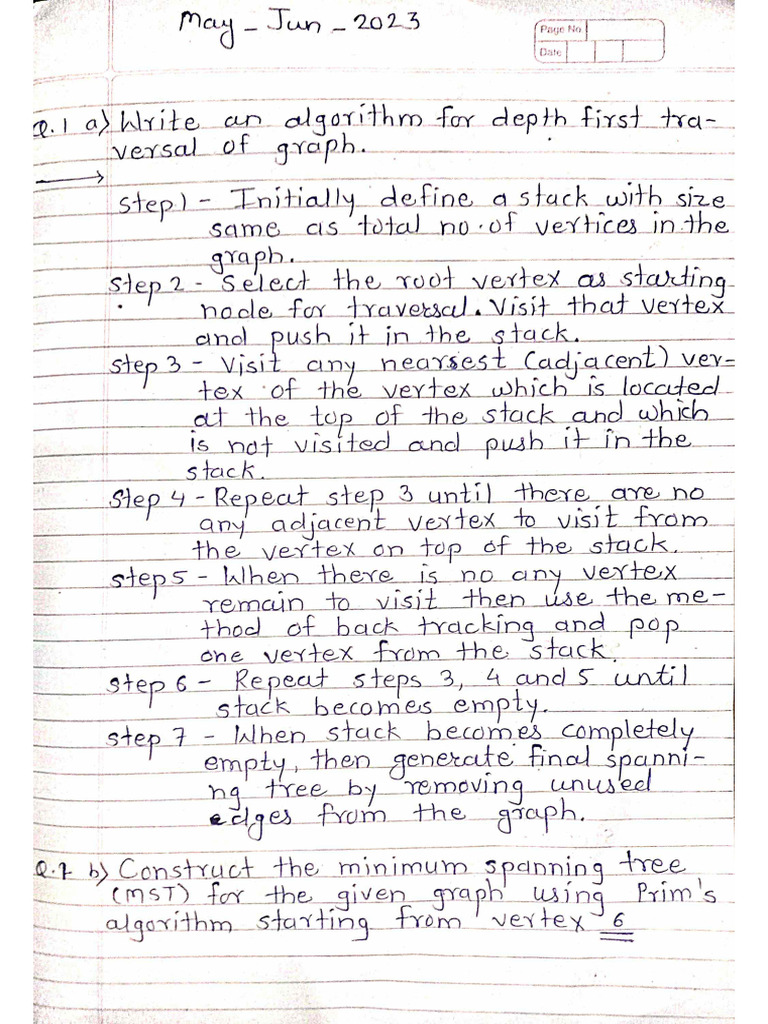 May - Jun - 2023
Page No
Date
Q.1 a) Write an algorithm for depth first tra-
versal of graph.
→
Step 1 - Initially define a stack with size
same as total no. of vertices in the
graph.
Step 2 - Select the root vertex as starting
node for traversal. Visit that vertex
and push it in the stack.
Step 3 - Visit any nearsest (adjacent) ver-
tex of the vertex which is located
at the top of the stack and which
is not visited and push it in the
stack.
Step 4 - Repeat step 3 until there are no
any adjacent vertex to visit from
the vertex on top of the stack.
step 5 - When there is no any vertex
remain to visit then use the me-
thod of back tracking and pop
one vertex from the stack.
step 6 - Repeat steps 3, 4 and 5 until
stack becomes empty.
step 7 - When stack becomes completely
empty, then generate final spanni-
ng tree by removing unused
edges from the graph.
Q.1 b) Construct the minimum spanning tree
(MST) for the given graph using Prim's
algorithm starting from vertex 6